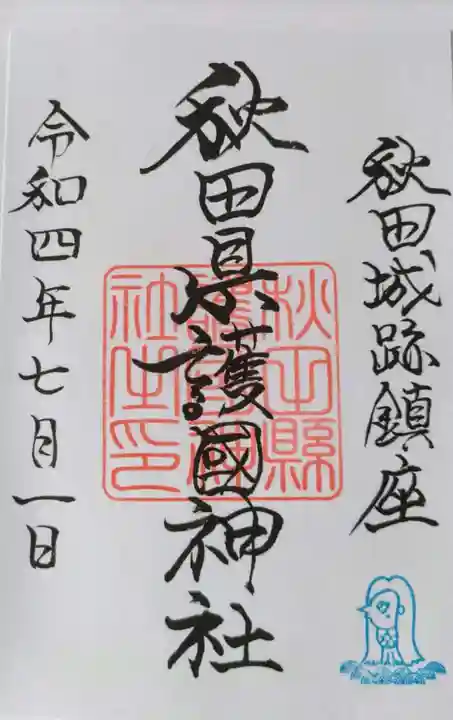 秋田城跡鎮座
秋田県護國神社
秋田縣護國神社之印
令和四年七月一日